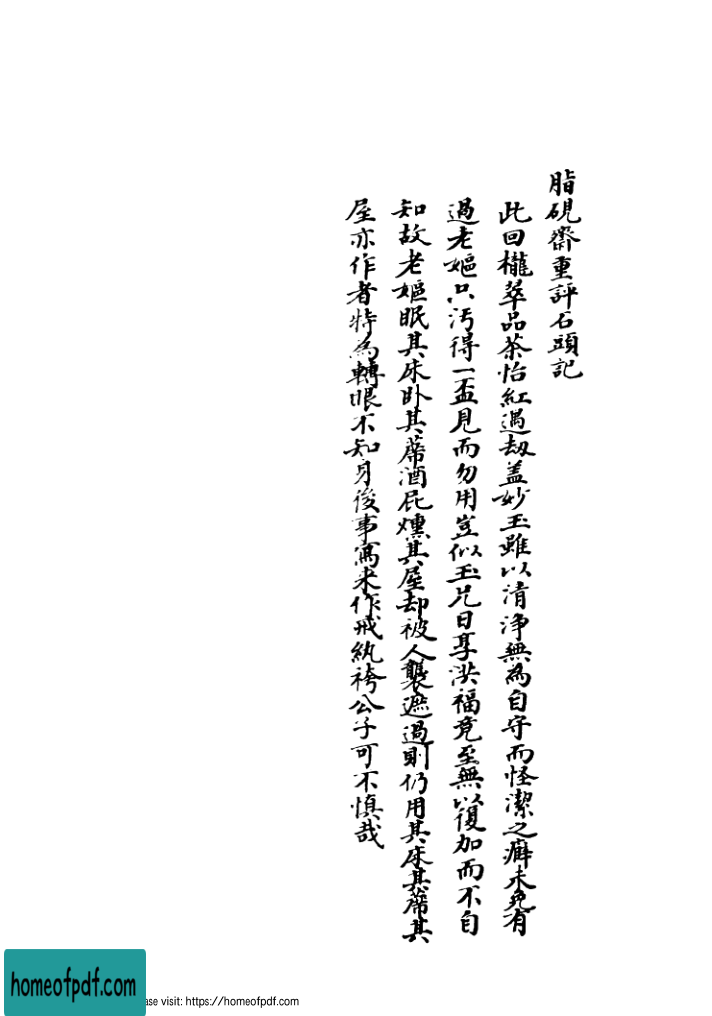 脂硯齋重評石頭記
此回櫳翠品茶怡紅遇劫盖妙玉雖以清淨無為自守而怪潔之癖未免有
過老嫗只污得一盃見而勿用豈似玉兄日享洪福竟至無以復加而不自
知故老嫗眠其床卧其蓆酒屁燻其屋却被人襲遮過則仍用其床其蓆其
屋亦作者特為轉眼不知身後事寫來作戒紈袴公子可不慎哉
homeofpdf.com
ase visit: https://homeofpdf.com